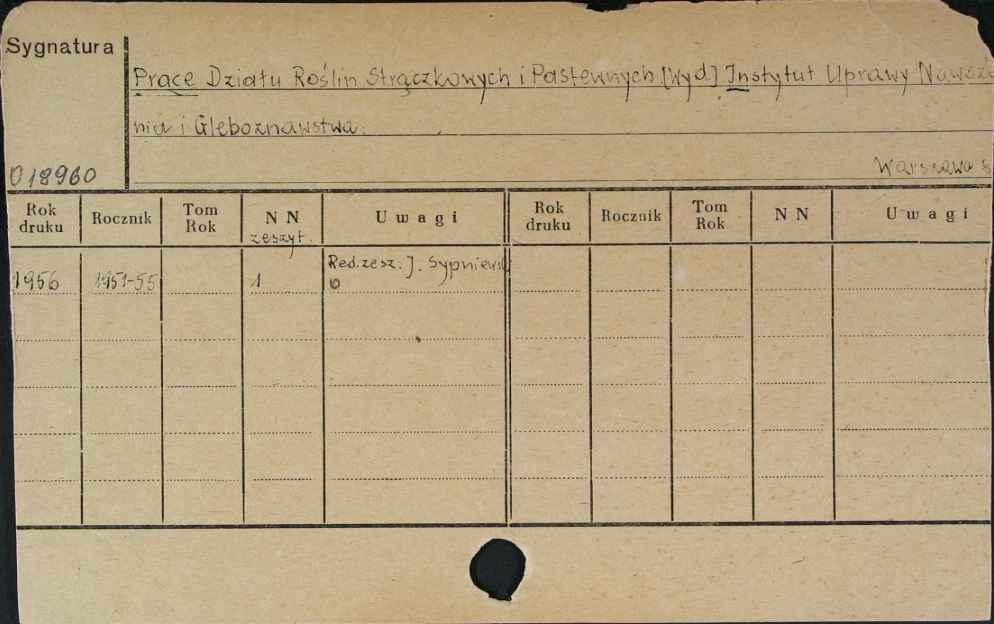 Sygnatura
Prace Działu Roślin Strączkowych i Pastewnych [Wyd] Instytut Uprawy Nawoże
nia i Gleboznawstwa.
018960
Warszawa
Rok druku Rocznik Tom Rok NN zeszyt. Uwagi Rok druku Rocznik Tom Rok NN Uwagi
Red. zesz. J. Sypniewsk
1956 1951-55 1